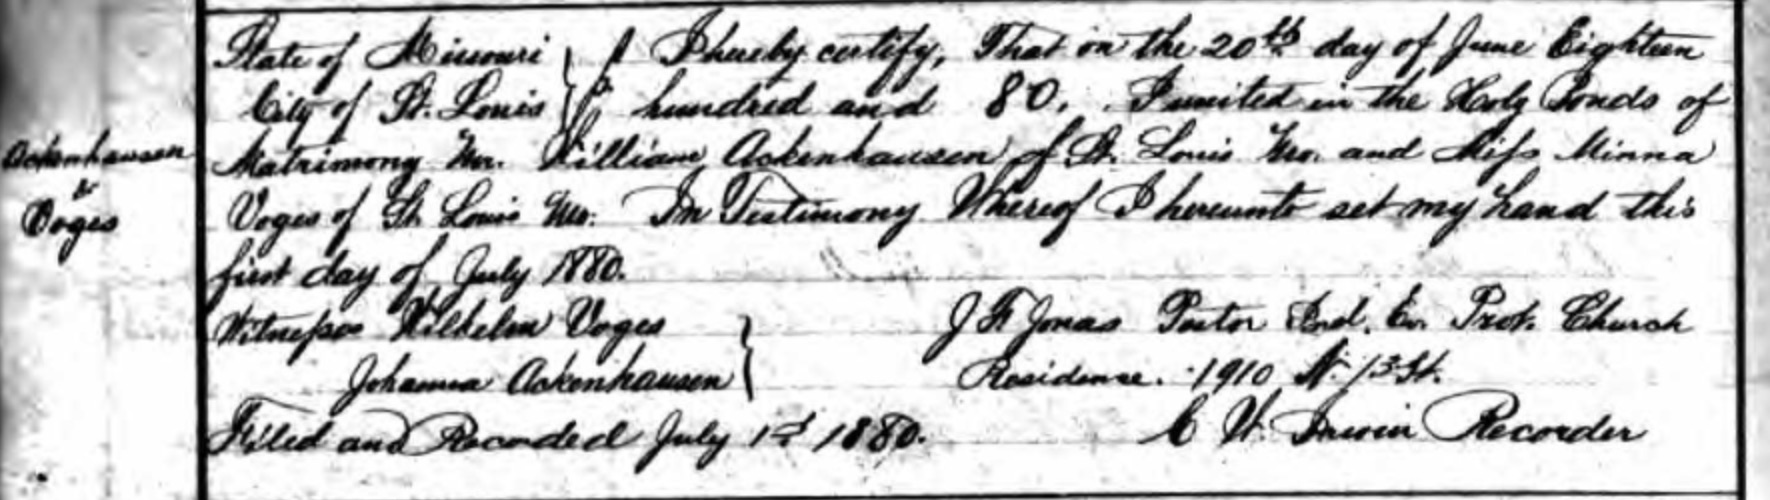 State of Missouri } I hereby certify, That on the 20th day of June Eighteen
City of St. Louis } hundred and 80, I united in the Holy Bonds of
Ackenhausen
&
Voges
Matrimony Mr. William Ackenhausen of St. Louis Mo. and Miss Minna
Voges of St. Louis Mo. In Testimony Whereof I hereunto set my hand this
first day of July 1880.
Witnesses Wilhelm Voges } J F Jonas Pastor Ind. Ev. Prot. Church
Johanna Ackenhausen } Residence. 1910 N. 13 St.
Filed and Recorded July 1st 1880. C W. Irwin Recorder